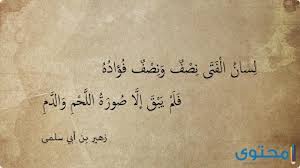 لِسَانُ الْفَتَى نِصْفٌ وَنِصْفٌ فُؤَادُهُ
فَلَمْ يَبْقَ إِلَّا صُورَةُ اللَّحْمِ وَالدَّمِ
زهير بن أبي سلمى
محتوى